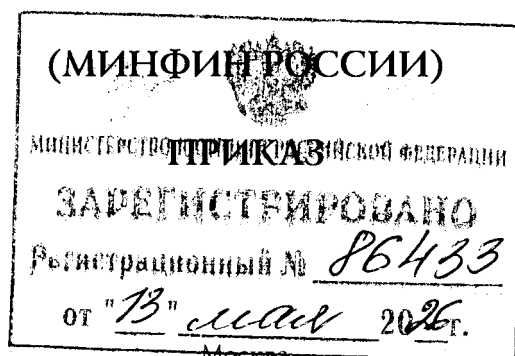 (МИНФИН РОССИИ)
МИНИСТЕРСТВО РОССИЙСКОЙ ФЕДЕРАЦИИ
ПРИКАЗ
ЗАРЕГИСТРИРОВАНО
Регистрационный № 86433
от "13" мая 2026г.
Москва